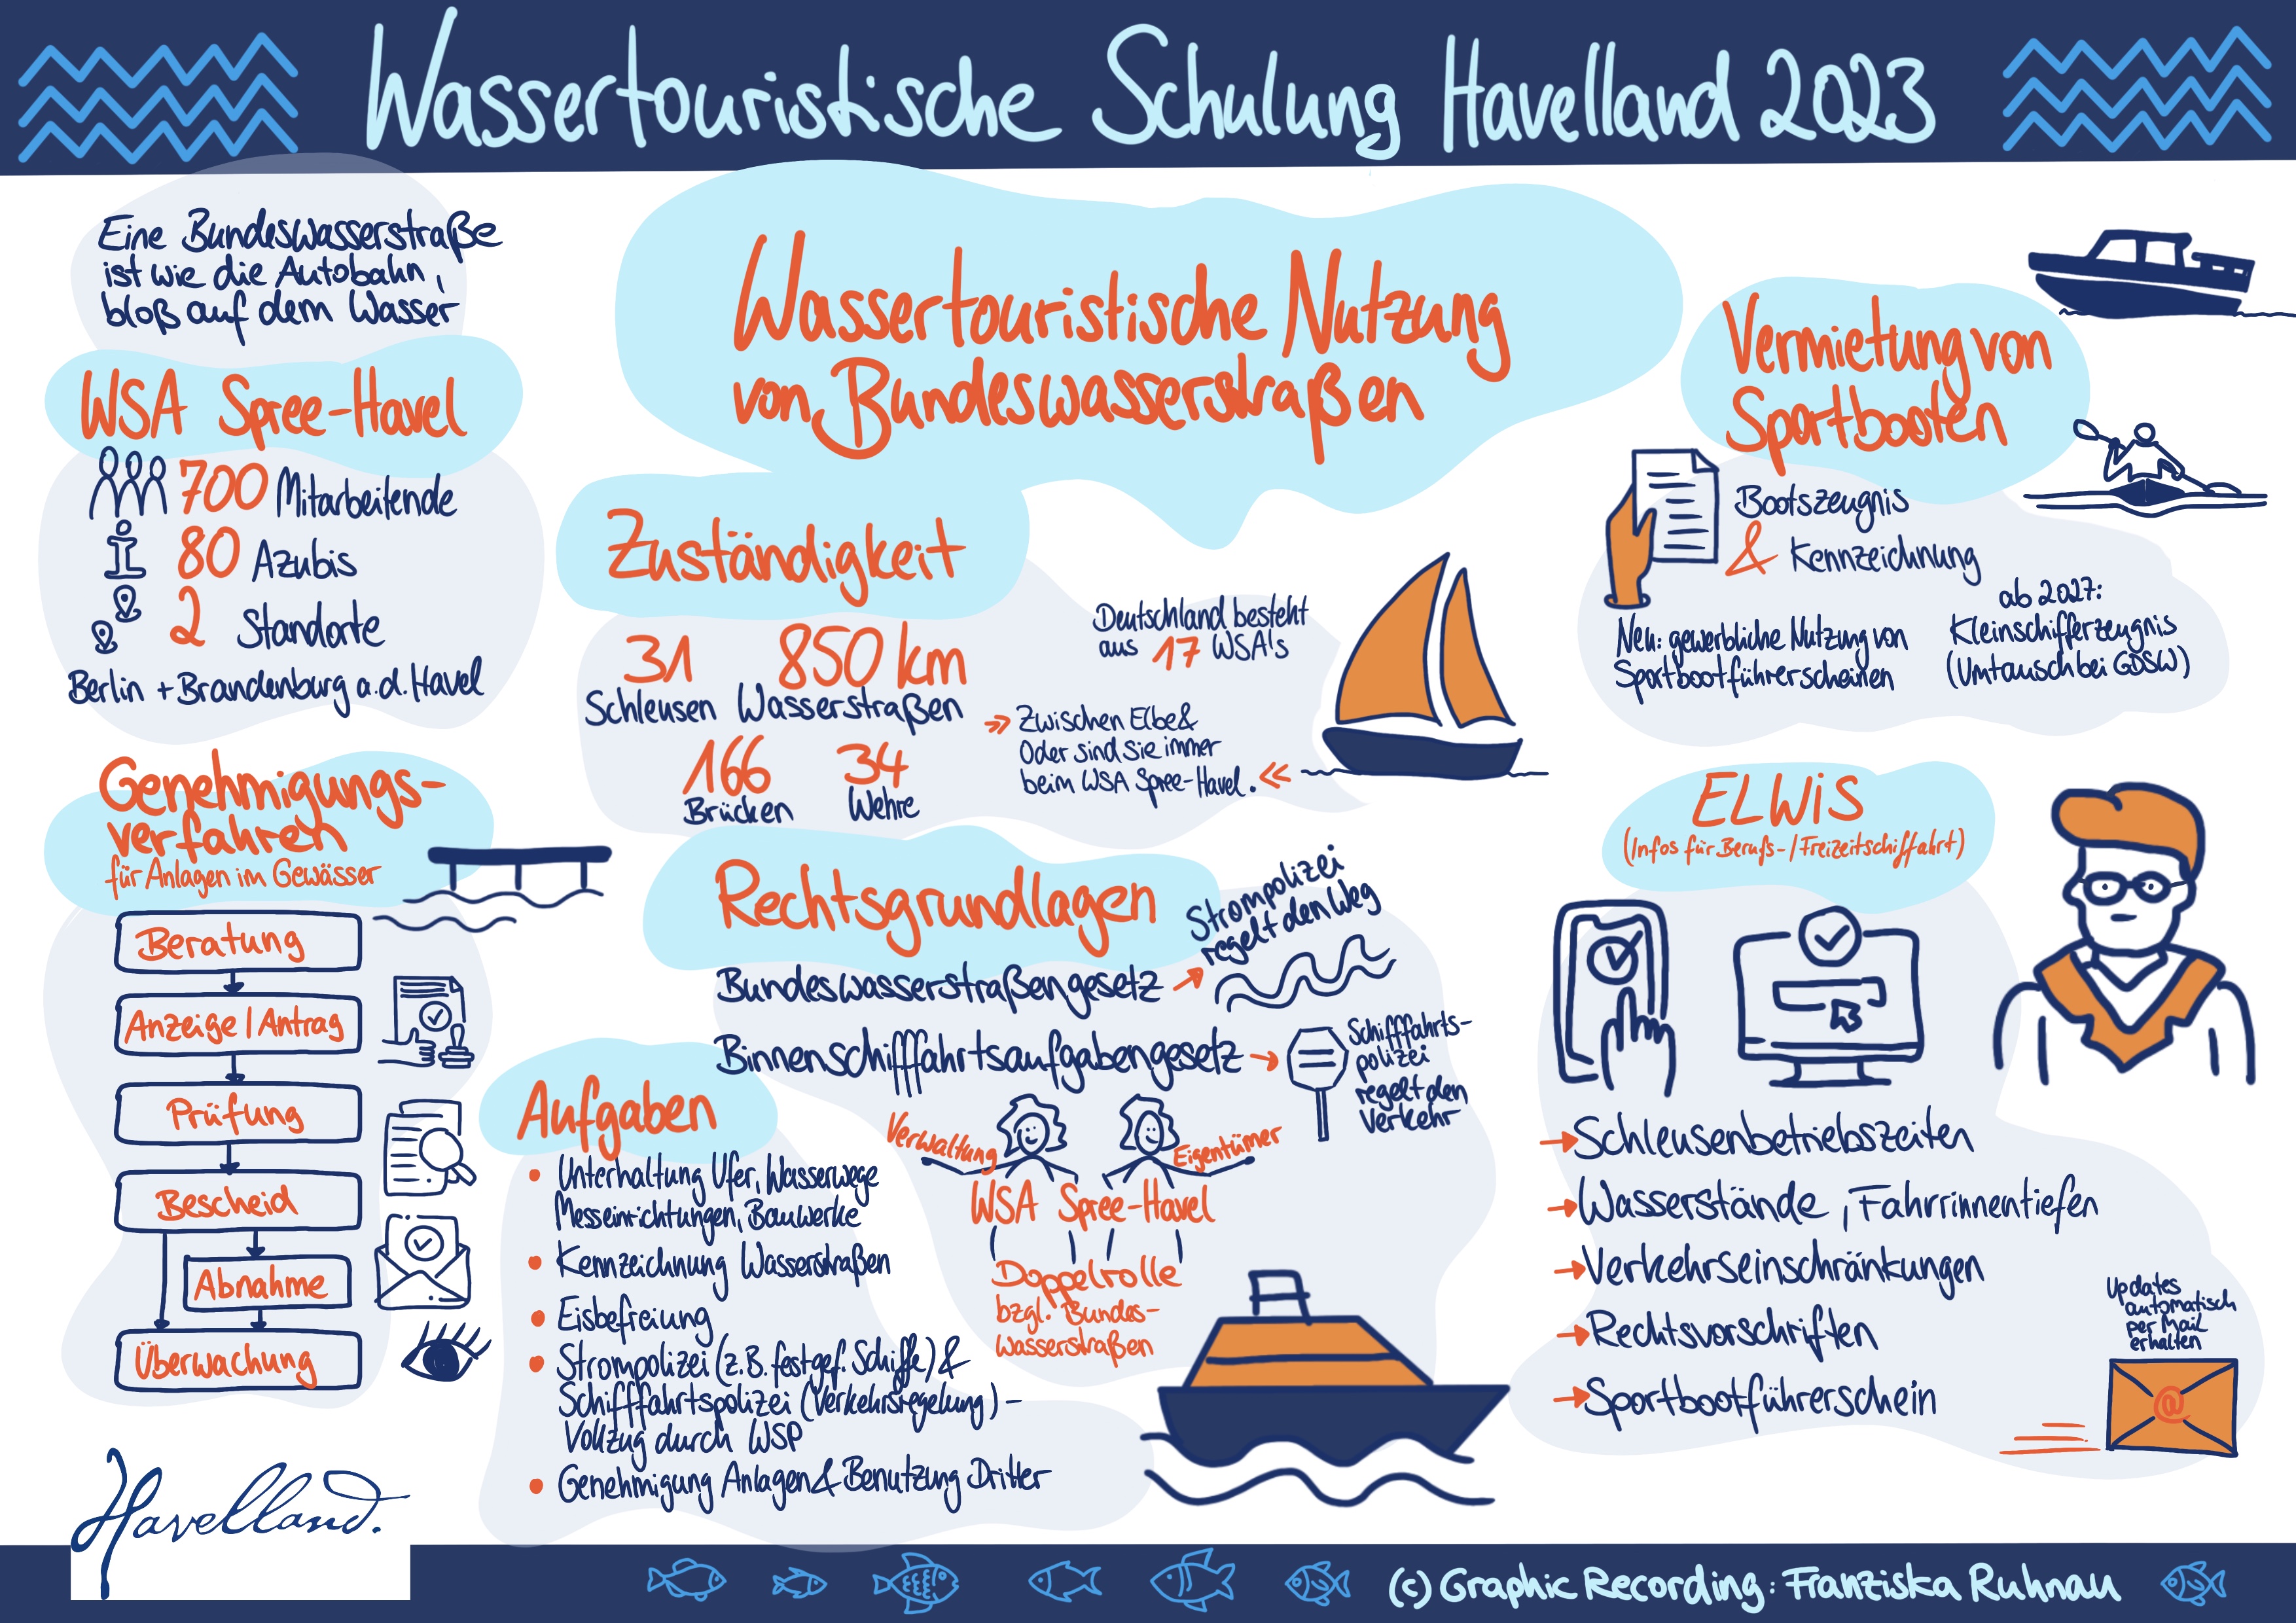 Wassertouristische Schulung Havelland 2023
Eine Bundeswasserstraße
ist wie die Autobahn,
bloß auf dem Wasser
WSA Spree-Havel
700 Mitarbeitende
80 Azubis
2 Standorte
Berlin + Brandenburg a.d. Havel
Genehmigungs-
verfahren
für Anlagen im Gewässer
Beratung
Anzeige / Antrag
Prüfung
Bescheid
Abnahme
Überwachung
Havelland.
Wassertouristische Nutzung
von Bundeswasserstraßen
Zuständigkeit
31
Schleusen
850 km
Wasserstraßen
166
Brücken
34
Wehre
Deutschland besteht
aus 17 WSA's
Zwischen Elbe &
Oder sind sie immer
beim WSA Spree-Havel.
Rechtsgrundlagen
Bundeswasserstraßengesetz
Strompolizei
regelt den Weg
Binnenschifffahrtsaufgabengesetz
Schifffahrts-
polizei
regelt den
Verkehr
Verwaltung
Eigentümer
WSA Spree-Havel
Doppelrolle
bzgl. Bundes-
wasserstraßen
Aufgaben
Unterhaltung Ufer, Wasserwege
Messeinrichtungen, Bauwerke
Kennzeichnung Wasserstraßen
Eisbefreiung
Strompolizei (z.B. festgef. Schiffe) &
Schifffahrtspolizei (Verkehrsregelung) -
Vollzug durch WSP
Genehmigung Anlagen & Benutzung Dritter
Vermietung von
Sportbooten
Bootszeugnis
& Kennzeichnung
Neu: gewerbliche Nutzung von
Sportbootführerscheinen
ab 2027:
Kleinschifferzeugnis
(Umtausch bei GDSW)
ELWiS
(Infos für Berufs-/Freizeitschiffahrt)
Schleusenbetriebszeiten
Wasserstände, Fahrrinnentiefen
Verkehrseinschränkungen
Rechtsvorschriften
Sportbootführerschein
Updates
automatisch
per Mail
erhalten
@
(c) Graphic Recording: Franziska Ruhnau